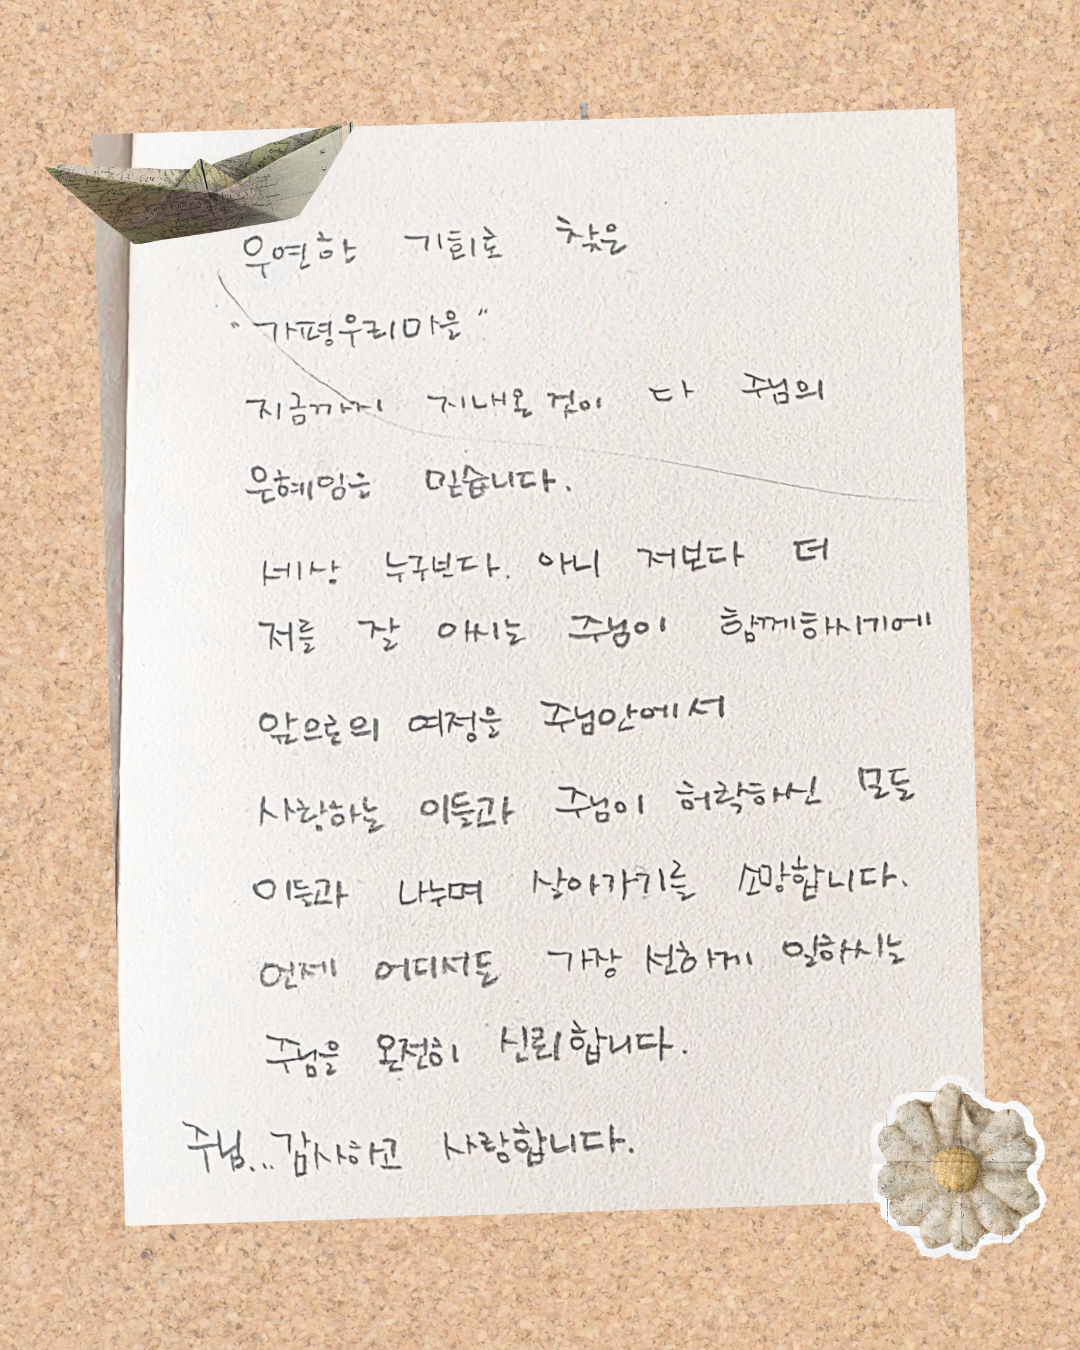 우연한 기회로 찾은
"가평우리마을"
지금까지 지내온 것이 다 주님의
은혜임을 믿습니다.
세상 누구보다. 아니 저보다 더
저를 잘 아시는 주님이 함께하시기에
앞으로의 여정을 주님안에서
사랑하는 이들과 주님이 허락하신 모든
이들과 나누며 살아가기를 소망합니다.
언제 어디서든 가장 선하게 일하시는
주님을 온전히 신뢰합니다.
주님... 감사하고 사랑합니다.